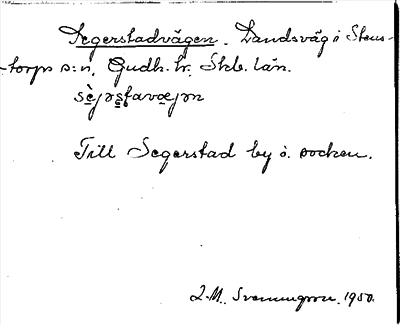 Segerstadvägen. Landsväg i Stens-
-torps s:n, Gudh. hr. Skb. län.
sèjəs̲tavæ̲jən
Till Segerstad by i socken.
1950.